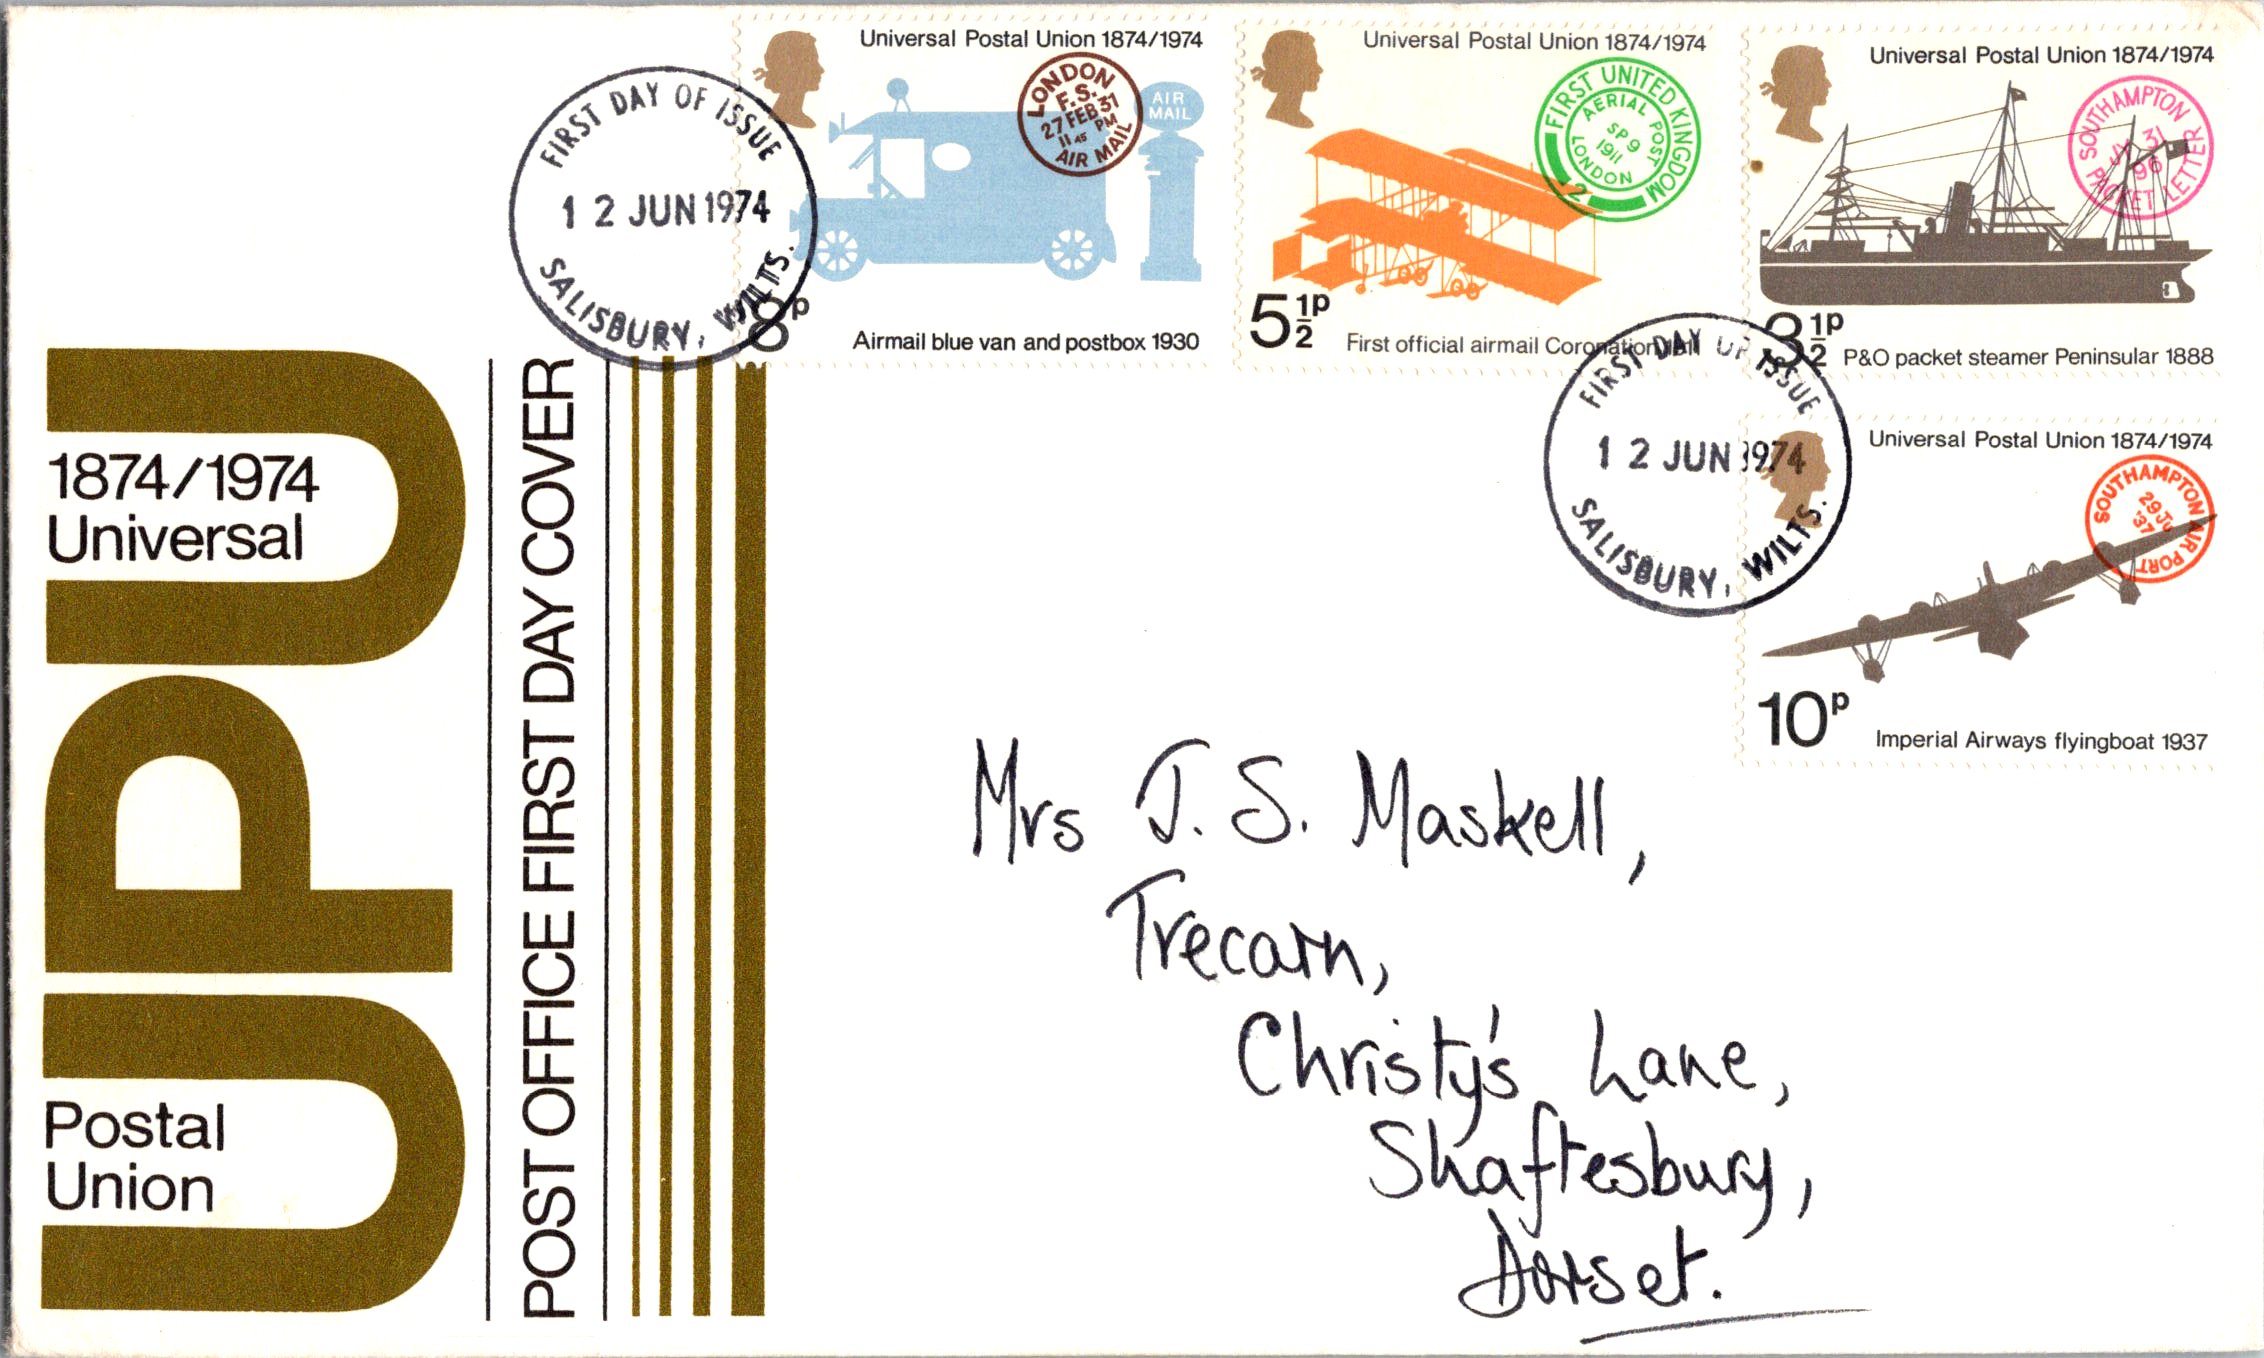 FIRST DAY OF ISSUE
12 JUN 1974
SALISBURY, WILTS.
Universal Postal Union 1874/1974
LONDON
F.S.
27 FEB 31
11 45 PM
AIR MAIL
AIR
MAIL
8p
Airmail blue van and postbox 1930
Universal Postal Union 1874/1974
FIRST UNITED KINGDOM
AERIAL POST
SP 9
1911
LONDON
2
5½p
First official airmail Coronation
Universal Postal Union 1874/1974
SOUTHAMPTON
31
96
PACKET LETTER
½p
P&O packet steamer Peninsular 1888
FIRST DAY OF ISSUE
12 JUN 1974
SALISBURY, WILTS.
Universal Postal Union 1874/1974
SOUTHAMPTON AIR PORT
29 JU
37
10p
Imperial Airways flyingboat 1937
UPU
1874/1974
Universal
Postal
Union
POST OFFICE FIRST DAY COVER
Mrs J. S. Maskell,
Trecarn,
Christy's Lane,
Shaftesbury,
Dorset.